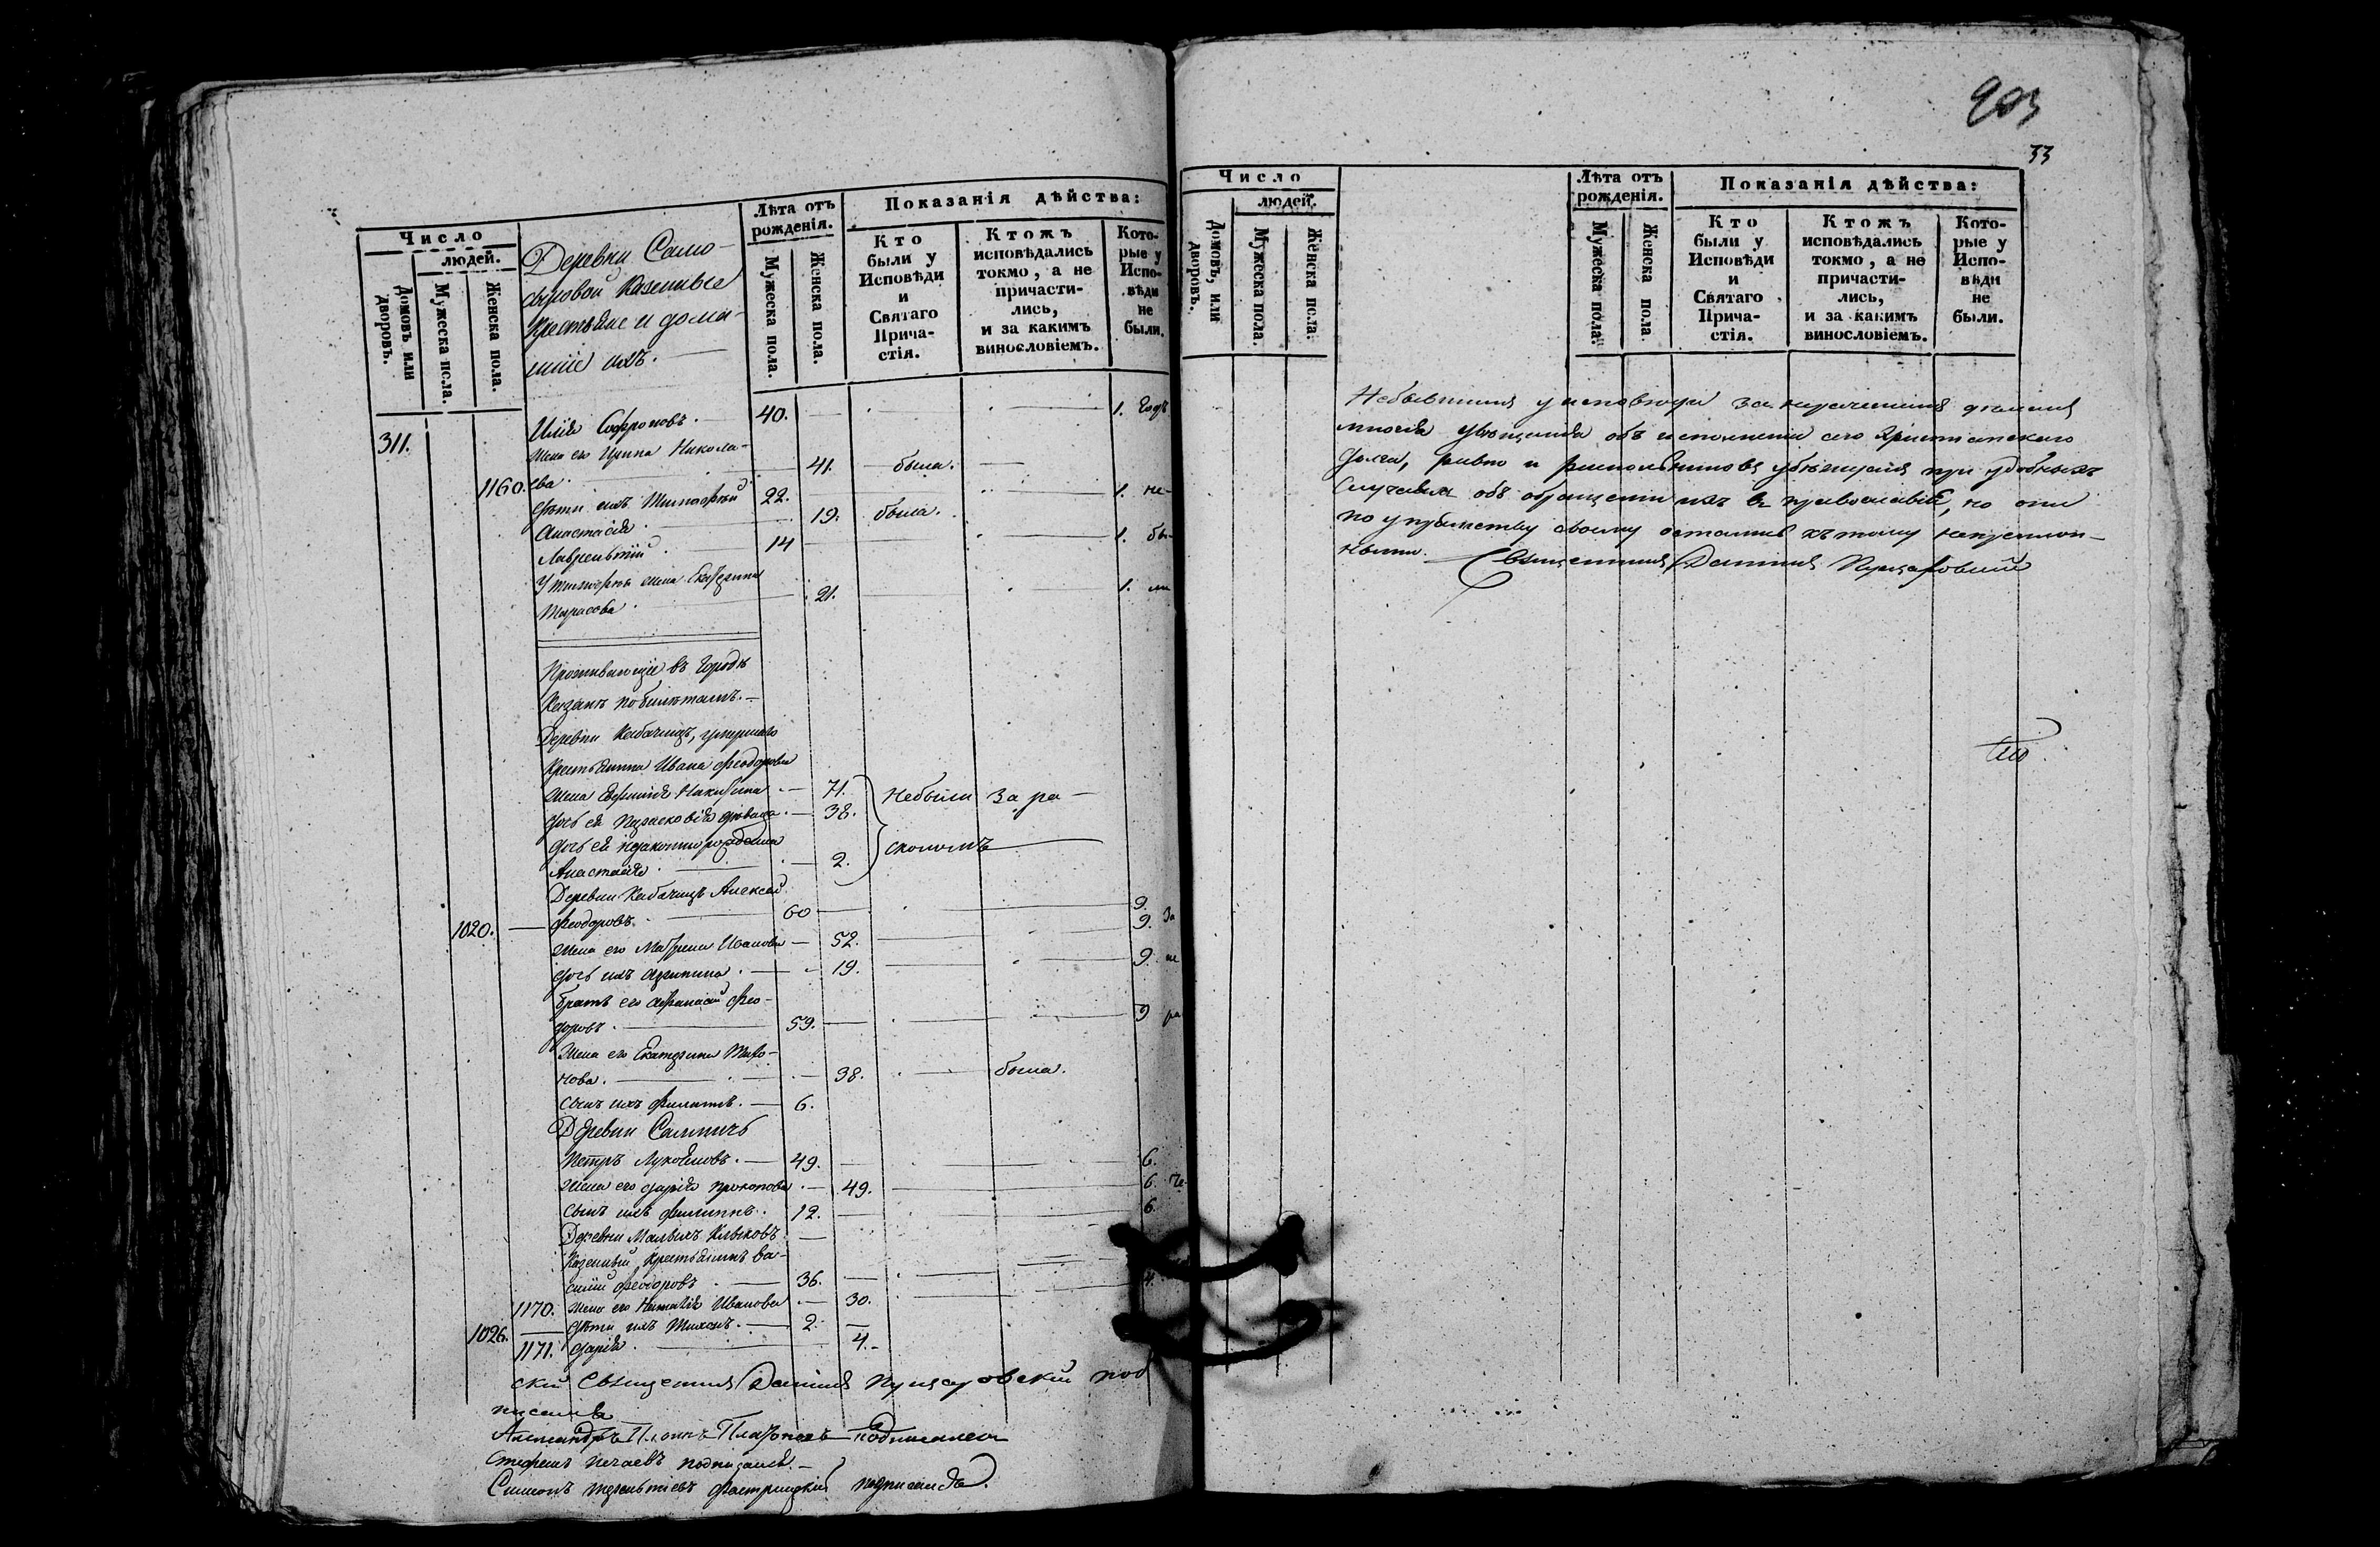 Число
людей.
Домовъ или дворовъ.
Мужеска пола.
Женска пола.
Деревни Само-
сыровой Казенные
Крестьяне и дома-
шніе ихъ.
Лѣта отъ рожденія.
Мужеска пола.
Женска пола.
Показанія дѣйства:
Кто были у Исповѣди и Святаго Прича-стія.
Ктожъ исповѣдались токмо, а не причасти-лись, и за какимъ винословіемъ.
Кото-рые у Испо-вѣди не были.
311. Илія Софроновъ. 40. 1. Годъ
Жена его Ирина Никола-
1160. ева. 41. была.
Дѣти ихъ Тимофей 22. 1. не-
Анастасія. 19. была.
Лаврентій. 14 1. бы-
У Тимофея жена Екатерина
Тарасова. 21. 1. ли
Проживающіе въ Городѣ
Казанѣ по билетамъ.
Деревни Кабачищъ, умершаго
Крестьянина Ивана Феодорова
Жена Евфимія Никитина 71. Небыли за ра-
дочь ея Парасковія девица. 38. сколомъ
дочь ея незаконно рожденна
Анастасія. 2.
Деревни Кабачищъ Алексей
1020. Феодоровъ. 60 9.
Жена его Матрена Иванова 52. 9. За
дочь ихъ Агрипина. 19. 9. не
братъ его Афанасій Фео-
доровъ. 59. 9 ра
Жена его Екатерина Миро-
нова. 38. была.
Сынъ ихъ Филиппъ. 6.
Деревни Салмачь
Петръ Лукояновъ. 49. 6.
Жена его Дарія Прокопова 49. 6. Че-
Сынъ ихъ Филиппъ. 12. 6.
Деревни Малыхъ Клыковъ
Казенный Крестьянинъ Ва-
силій Феодоровъ 36. 4.
1170. Жена его Наталія Иванова 30.
1026. Дѣти ихъ Тихонъ. 2.
1171. Дарія. 4.
скій Священникъ Даніилъ под
писался
Александръ Платоновъ подписался
Стефанъ Нечаевъ подписался.
Симеонъ Терентіевъ подписался.
203
33
Число
людей.
Домовъ, или дворовъ.
Мужеска пола.
Женска пола.
Лѣта отъ рожденія.
Мужеска пола.
Женска пола.
Показанія дѣйства:
Кто были у Исповѣди и Святаго Прича-стія.
Ктожъ исповѣдались токмо, а не причасти-лись, и за какимъ винословіемъ.
Кото-рые у Испо-вѣди не были.
Небывшимъ у исповѣди за нераченіемъ дѣланы
многія увѣщанія объ исполненіи сего Христіанскаго
долга, равно и раскольниковъ убѣждалъ при удобныхъ
Случаяхъ объ обращеніи ихъ въ православіе, но они
по упрямству своему остались къ тому непреклон-
ными. Священникъ Даніилъ